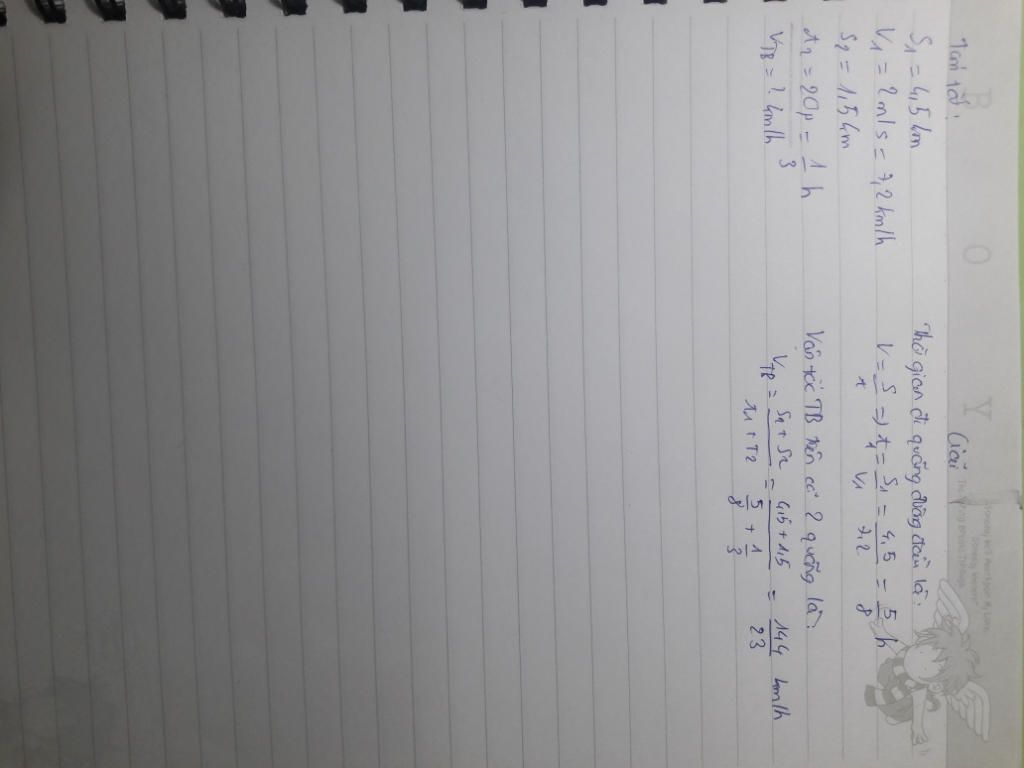 B O Y
Tóm tắt:
S1 = 4,5 km
V1 = 2 m/s = 7,2 km/h
S2 = 1,5 km
t2 = 20p = 1/3 h
VTB = ? km/h
Giải
Thời gian đi quãng đường đầu là:
V = S/t => t1 = S1/V1 = 4,5/7,2 = 5/8 h
Vận tốc TB trên cả 2 quãng là:
VTB = S1 + S2/t1 + T2 = 4,5 + 1,5/5/8 + 1/3 = 144/23 km/h